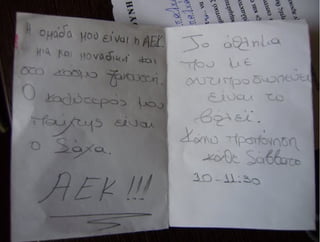 Η ομάδα μου είναι η ΑΕΚ
μια και μοναδική και
στο κόσμο ξακουστή.
Ο καλύτερος μου
παίχτης είναι
ο Σάχα.
ΑΕΚ !!!
Το άθλημα
που με
αντιπροσωπεύει
είναι το
βολεϊ.
Κάνω προπόνηση
κάθε Σάββατο
10-11:30